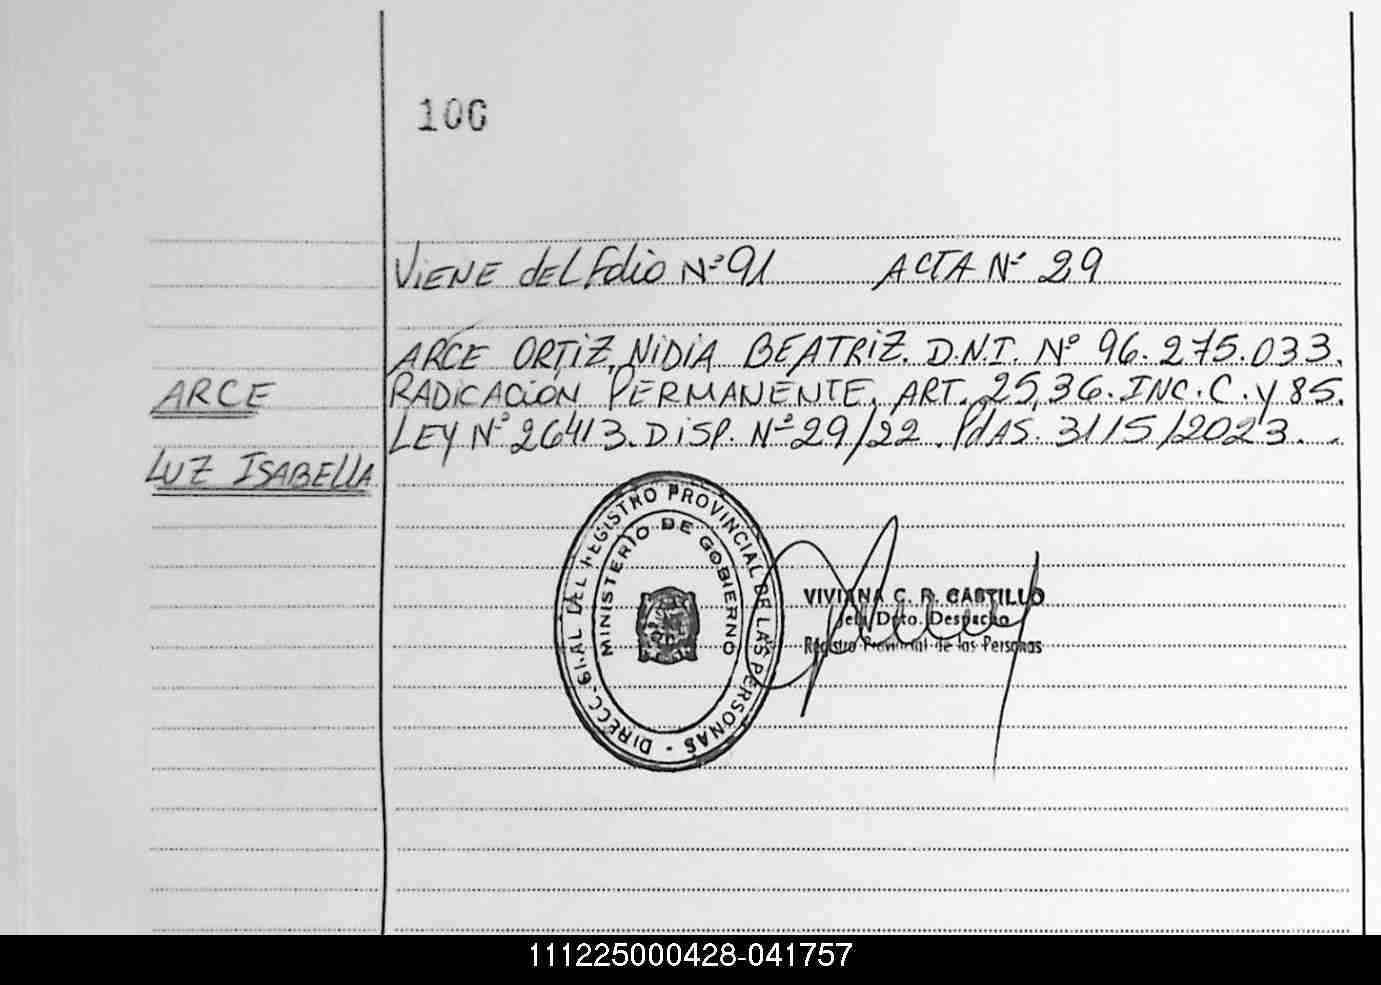 100
VIENE del Folio Nº 91 ACTA Nº 29
ARCE ORTIZ, NIDIA BEATRIZ. D.N.I. Nº 96.275.033.
ARCE
RADICACIÓN PERMANENTE. ART. 25,36. INC. C. y 85.
LEY Nº 26413. DISP. Nº 29/22. PdAS. 31/5/2023. -
LUZ ISABELLA
DIRECC. GRAL DEL REGISTRO PROVINCIAL DE LAS PERSONAS -
MINISTERIO DE GOBIERNO
VIVIANA C. R. CASTILLO
Jefa Dpto. Despacho
Registro Provincial de las Personas
111225000428-041757